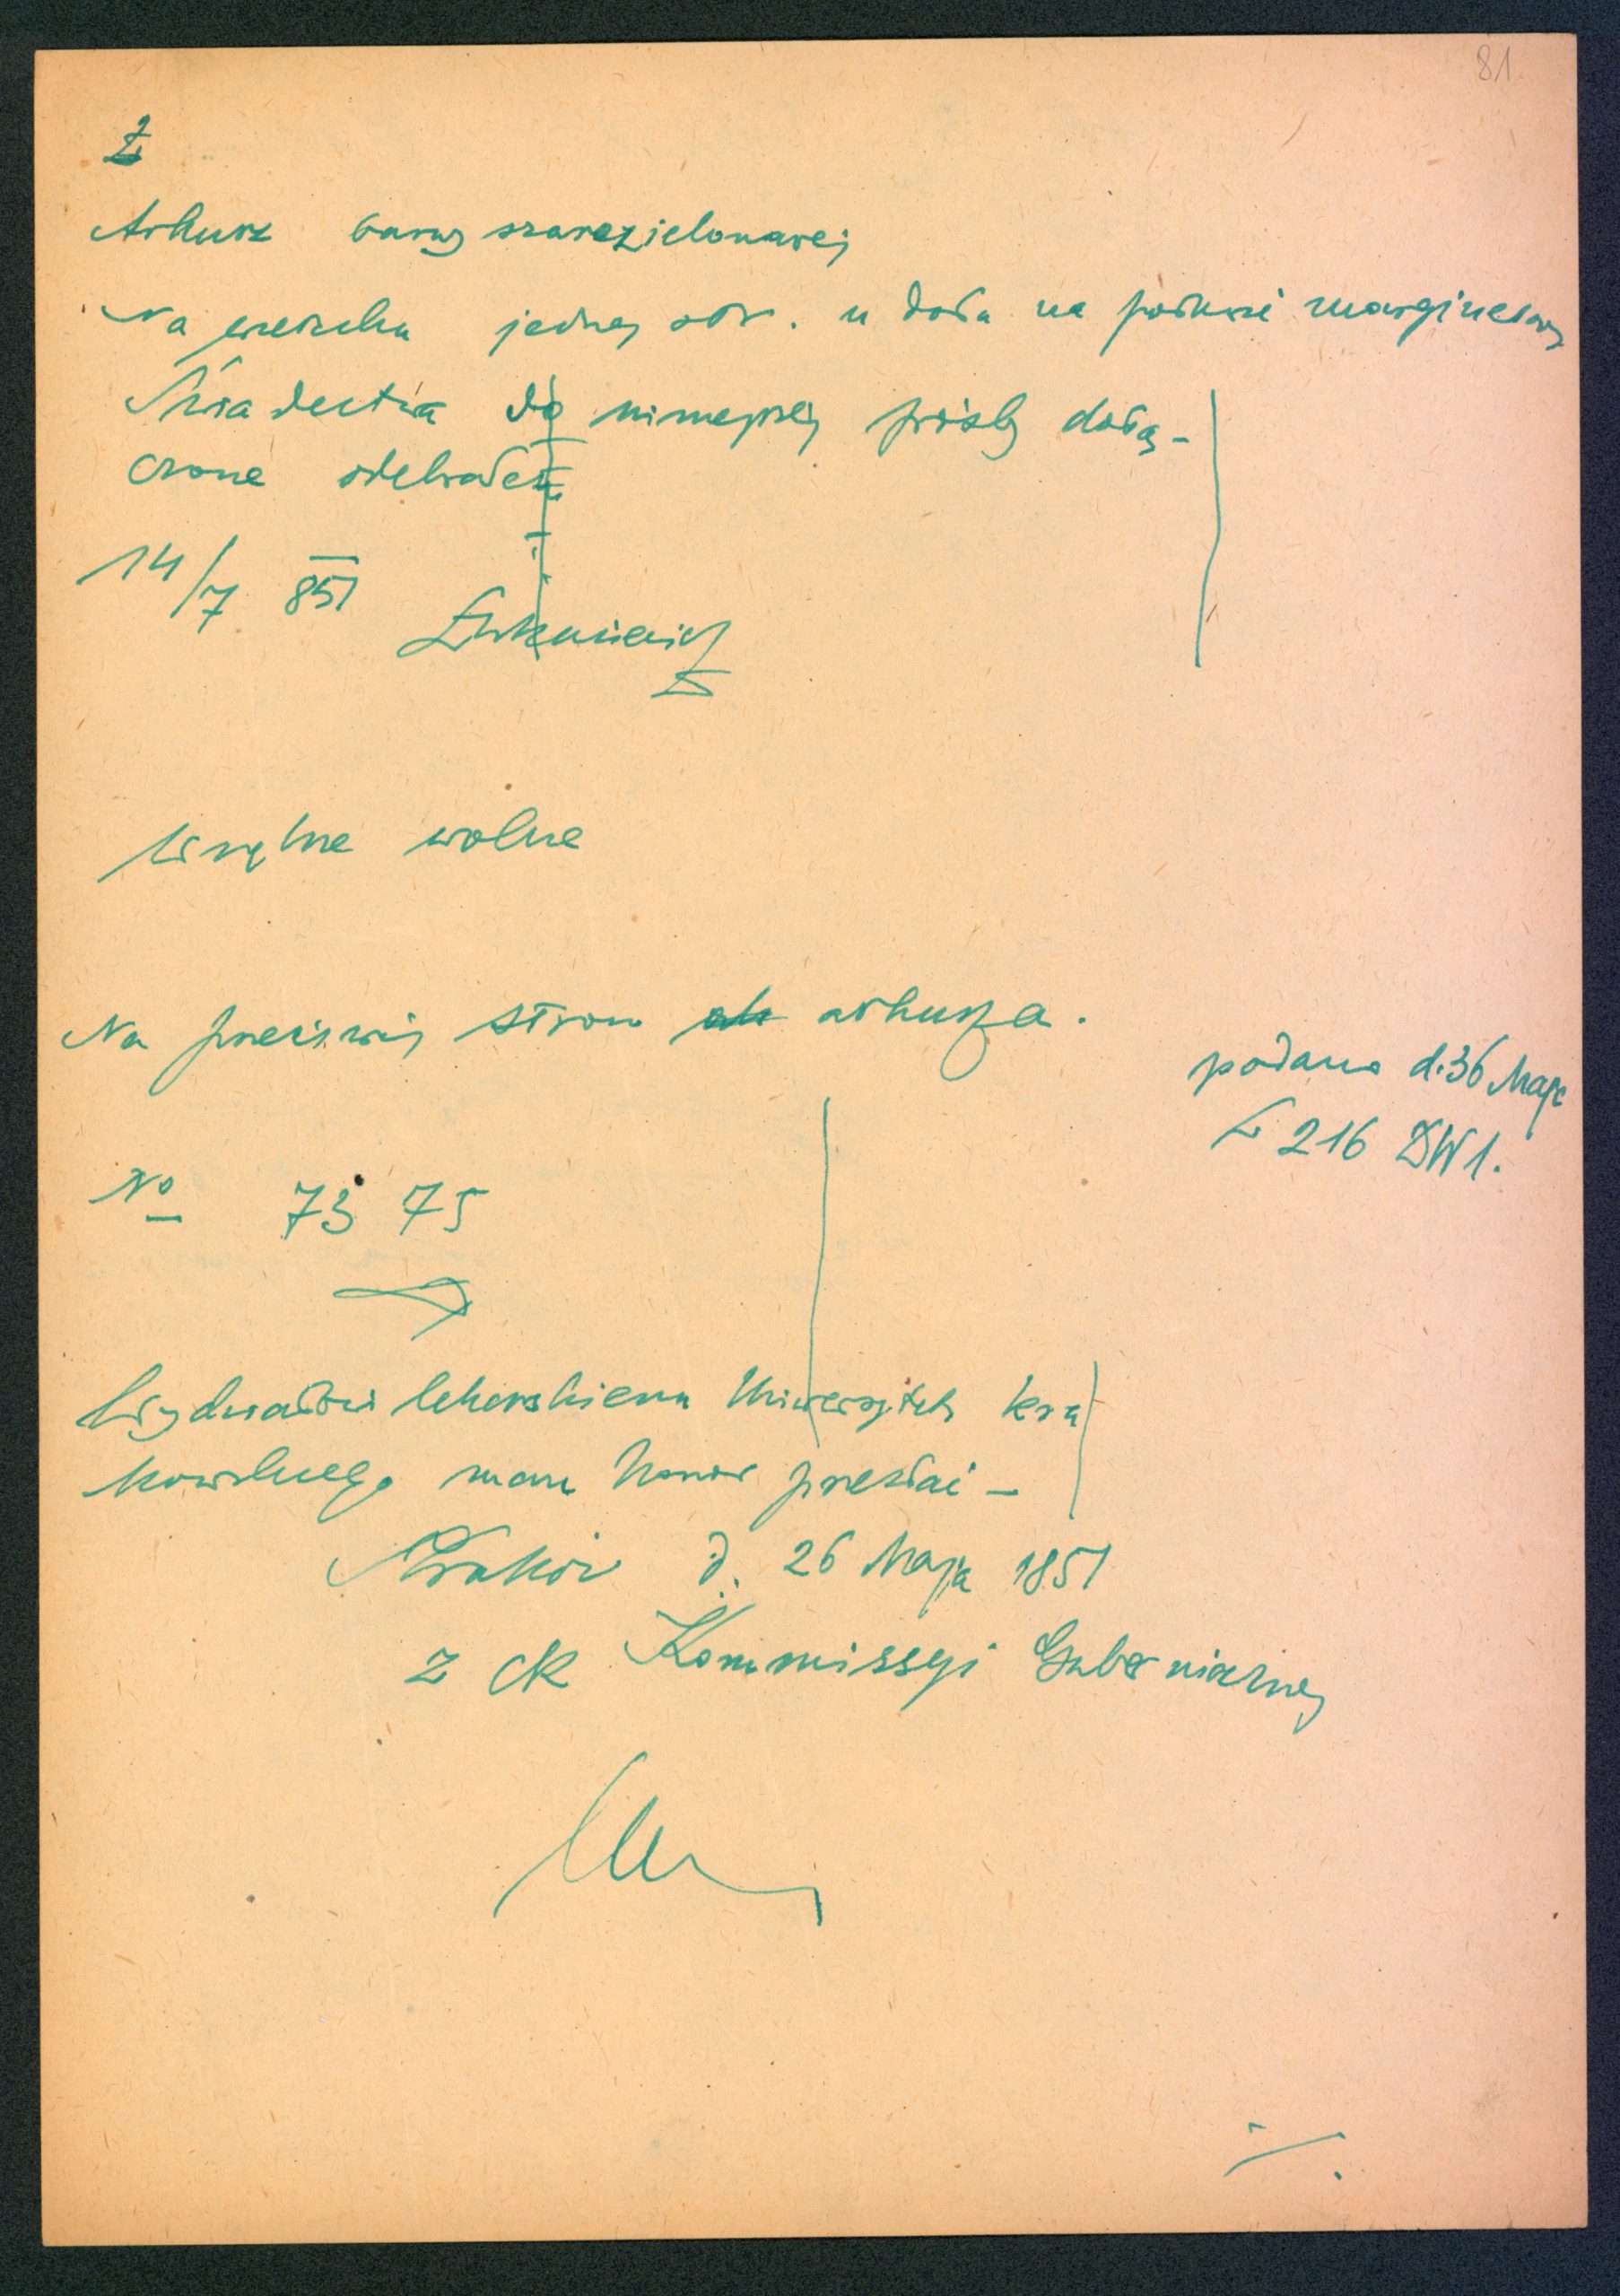 81
Ł
Arkusz barwy szarozielonawej
Na wierzchu jednej str. u dołu na połowie marginesowej
Świadectwa do niniejszej prośby dołą-
czone odebrałem
14/7 851
Łukasiewicz
wnętrze wolne
Na przedniej stronie arkusza.
podano d. 36 Maja
L 216 DW1.
No 7375
Wydziałowi lekarskiemu Uniwersytetu kra
kowskiego mam honor przesłać -
Kraków d. 26 Maja 1851
z ck Kommissyi Gubernialnej